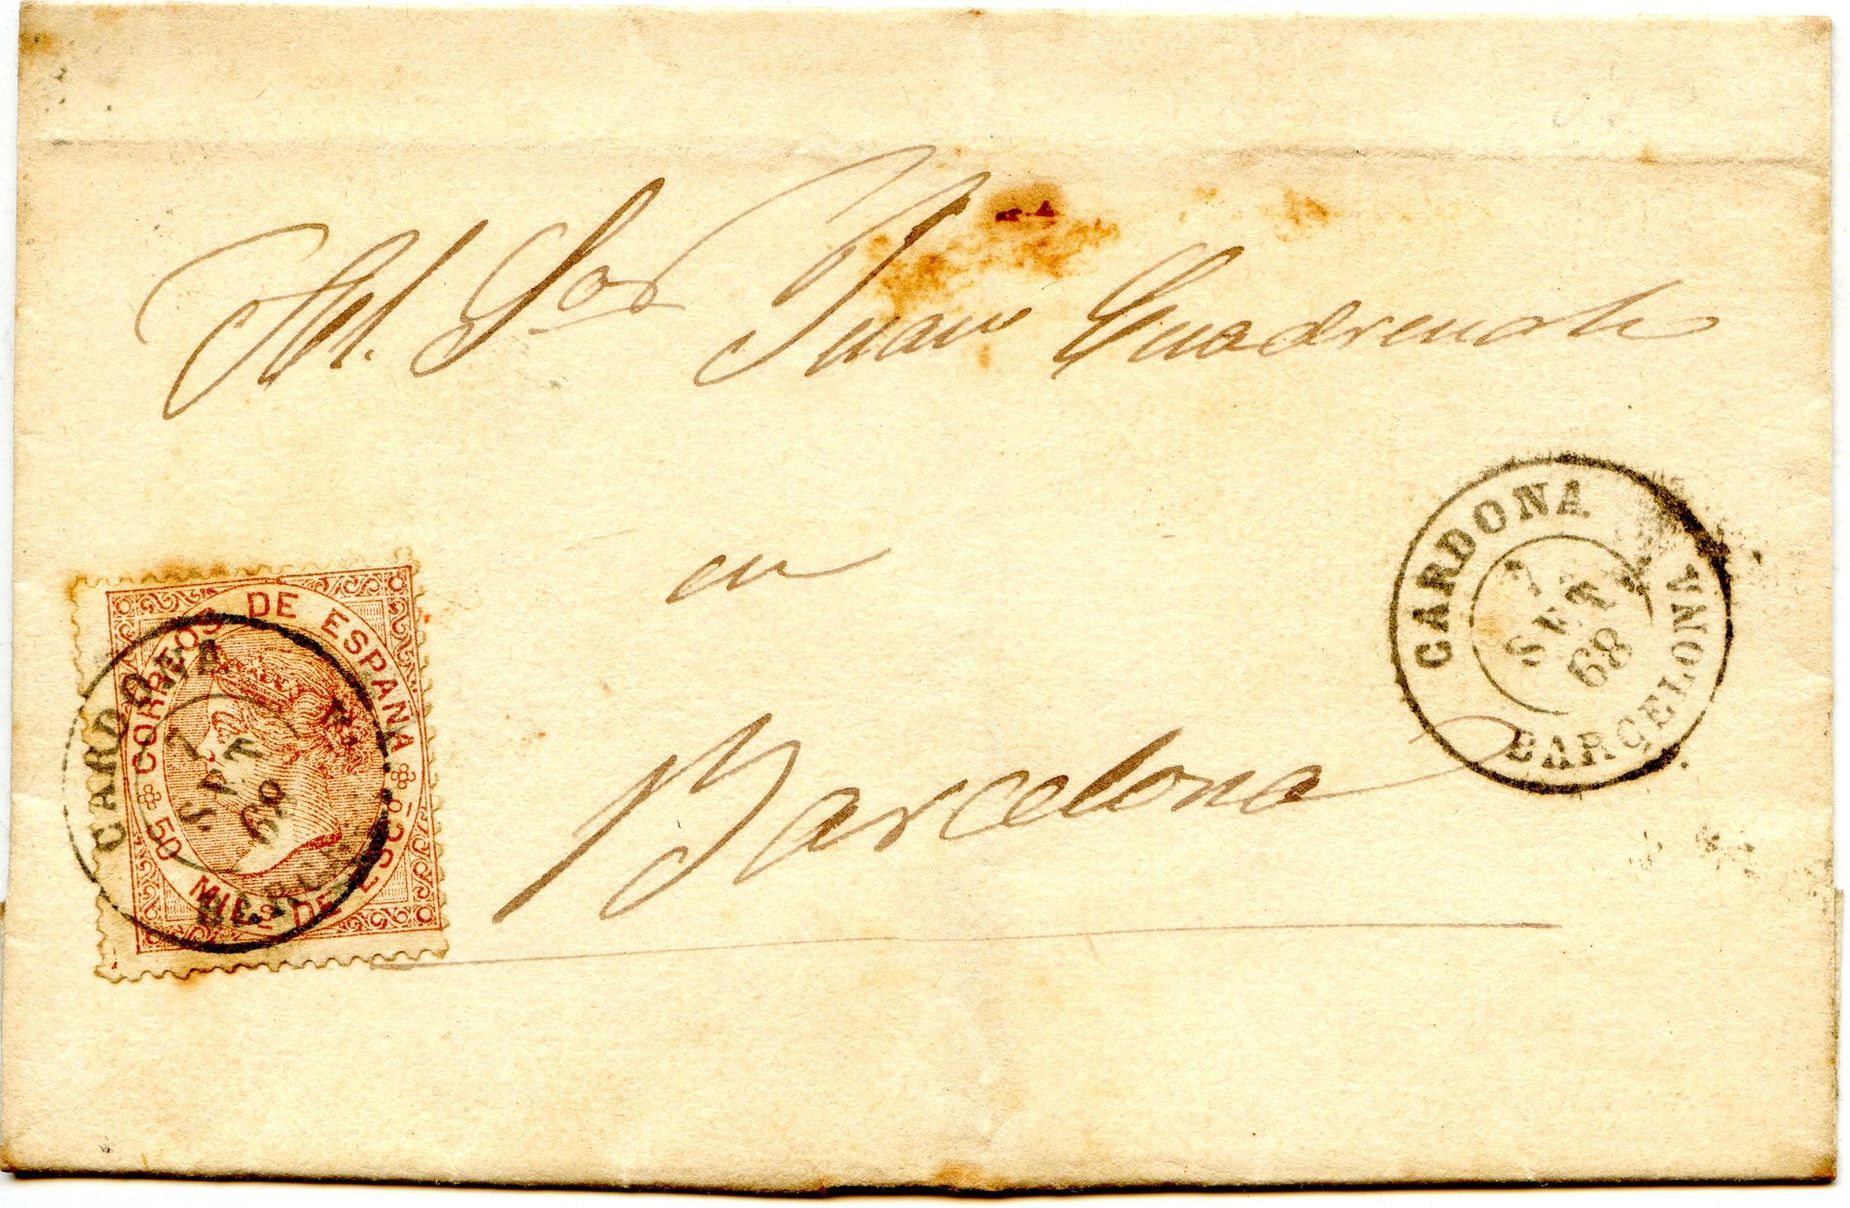 Sor Juan Cuadrench
en
Barcelona
CORREOS DE ESPAÑA
50 MILS DE ESCO
CARDONA
7
SET
68
CARDONA
7
SET
68
BARCELONA